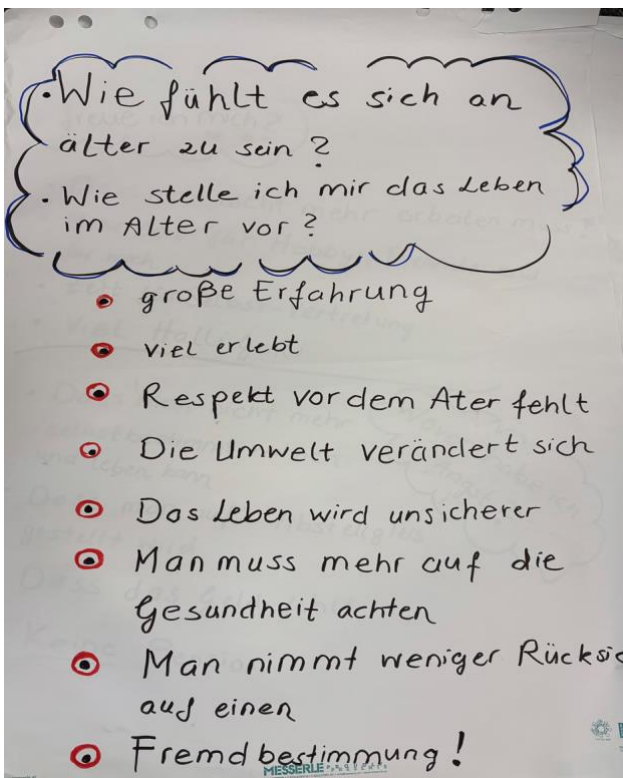 · Wie fühlt es sich an
älter zu sein?
· Wie stelle ich mir das Leben
im Alter vor?
große Erfahrung
viel erlebt
Respekt vor dem Ater fehlt
Die Umwelt verändert sich
Das Leben wird unsicherer
Man muss mehr auf die
Gesundheit achten
Man nimmt weniger Rücksic
auf einen
Fremdbestimmung!
MESSERLE